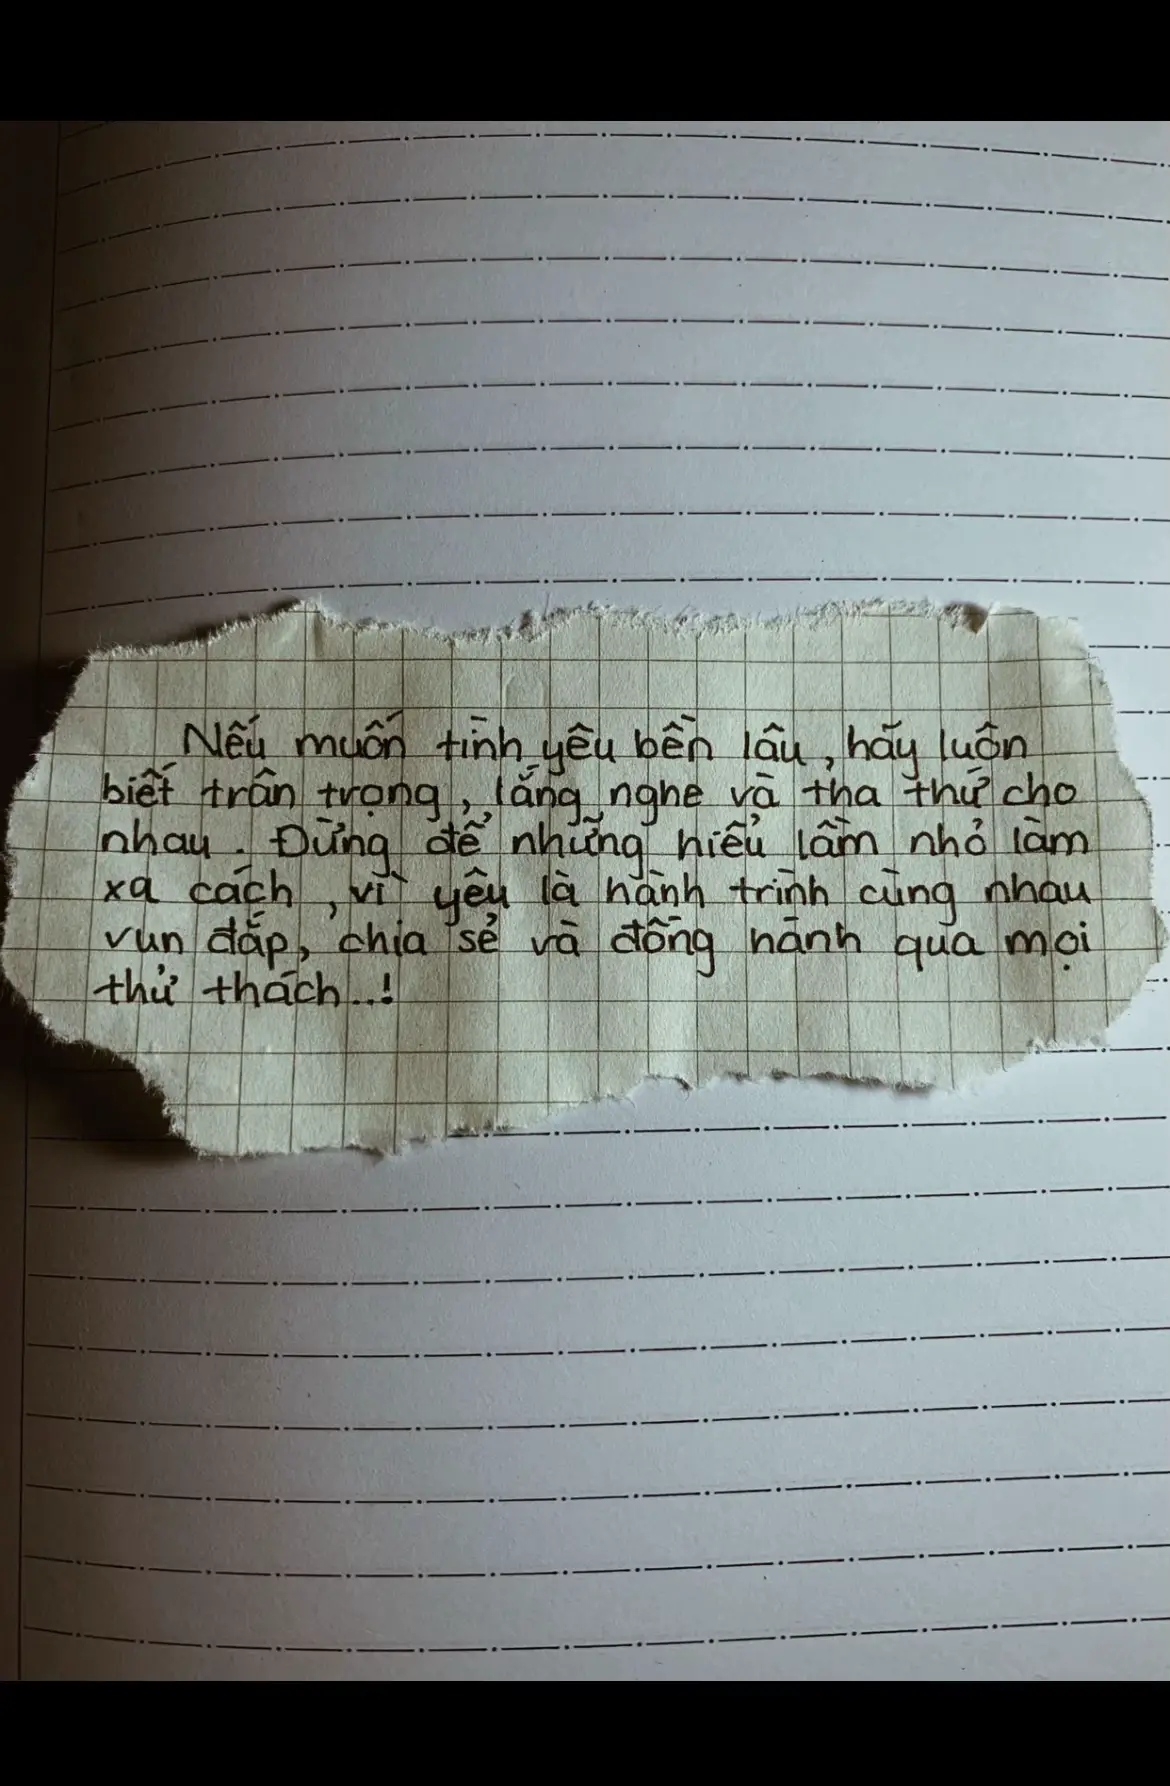 Nếu muốn tình yêu bền lâu, hãy luôn
biết trân trọng, lắng nghe và tha thứ cho
nhau. Đừng để những hiểu lầm nhỏ làm
xa cách, vì yêu là hành trình cùng nhau
vun đắp, chia sẻ và đồng hành qua mọi
thử thách...!